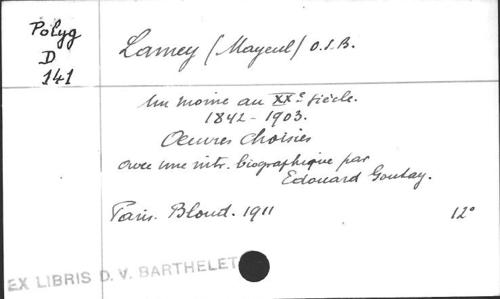 Polyg
D
141
Lamey (Mayeul) O.S.B.
Un moine au XXe siècle.
1842-1903.
Oeuvres choisies
avec une intr. biographique par
Edouard Goutay.
Paris. Bloud. 1911
12°
EX LIBRIS D. V. BARTHELET